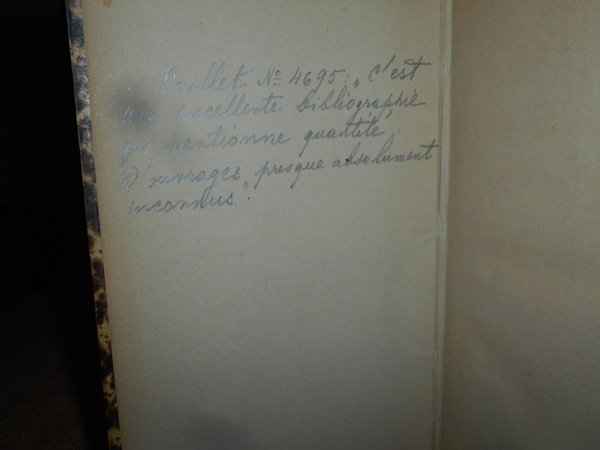 Caillet No 4695: „C'est
une excellente bibliographie
qui mentionne quantité
d'ouvrages presque absolument
inconnus".